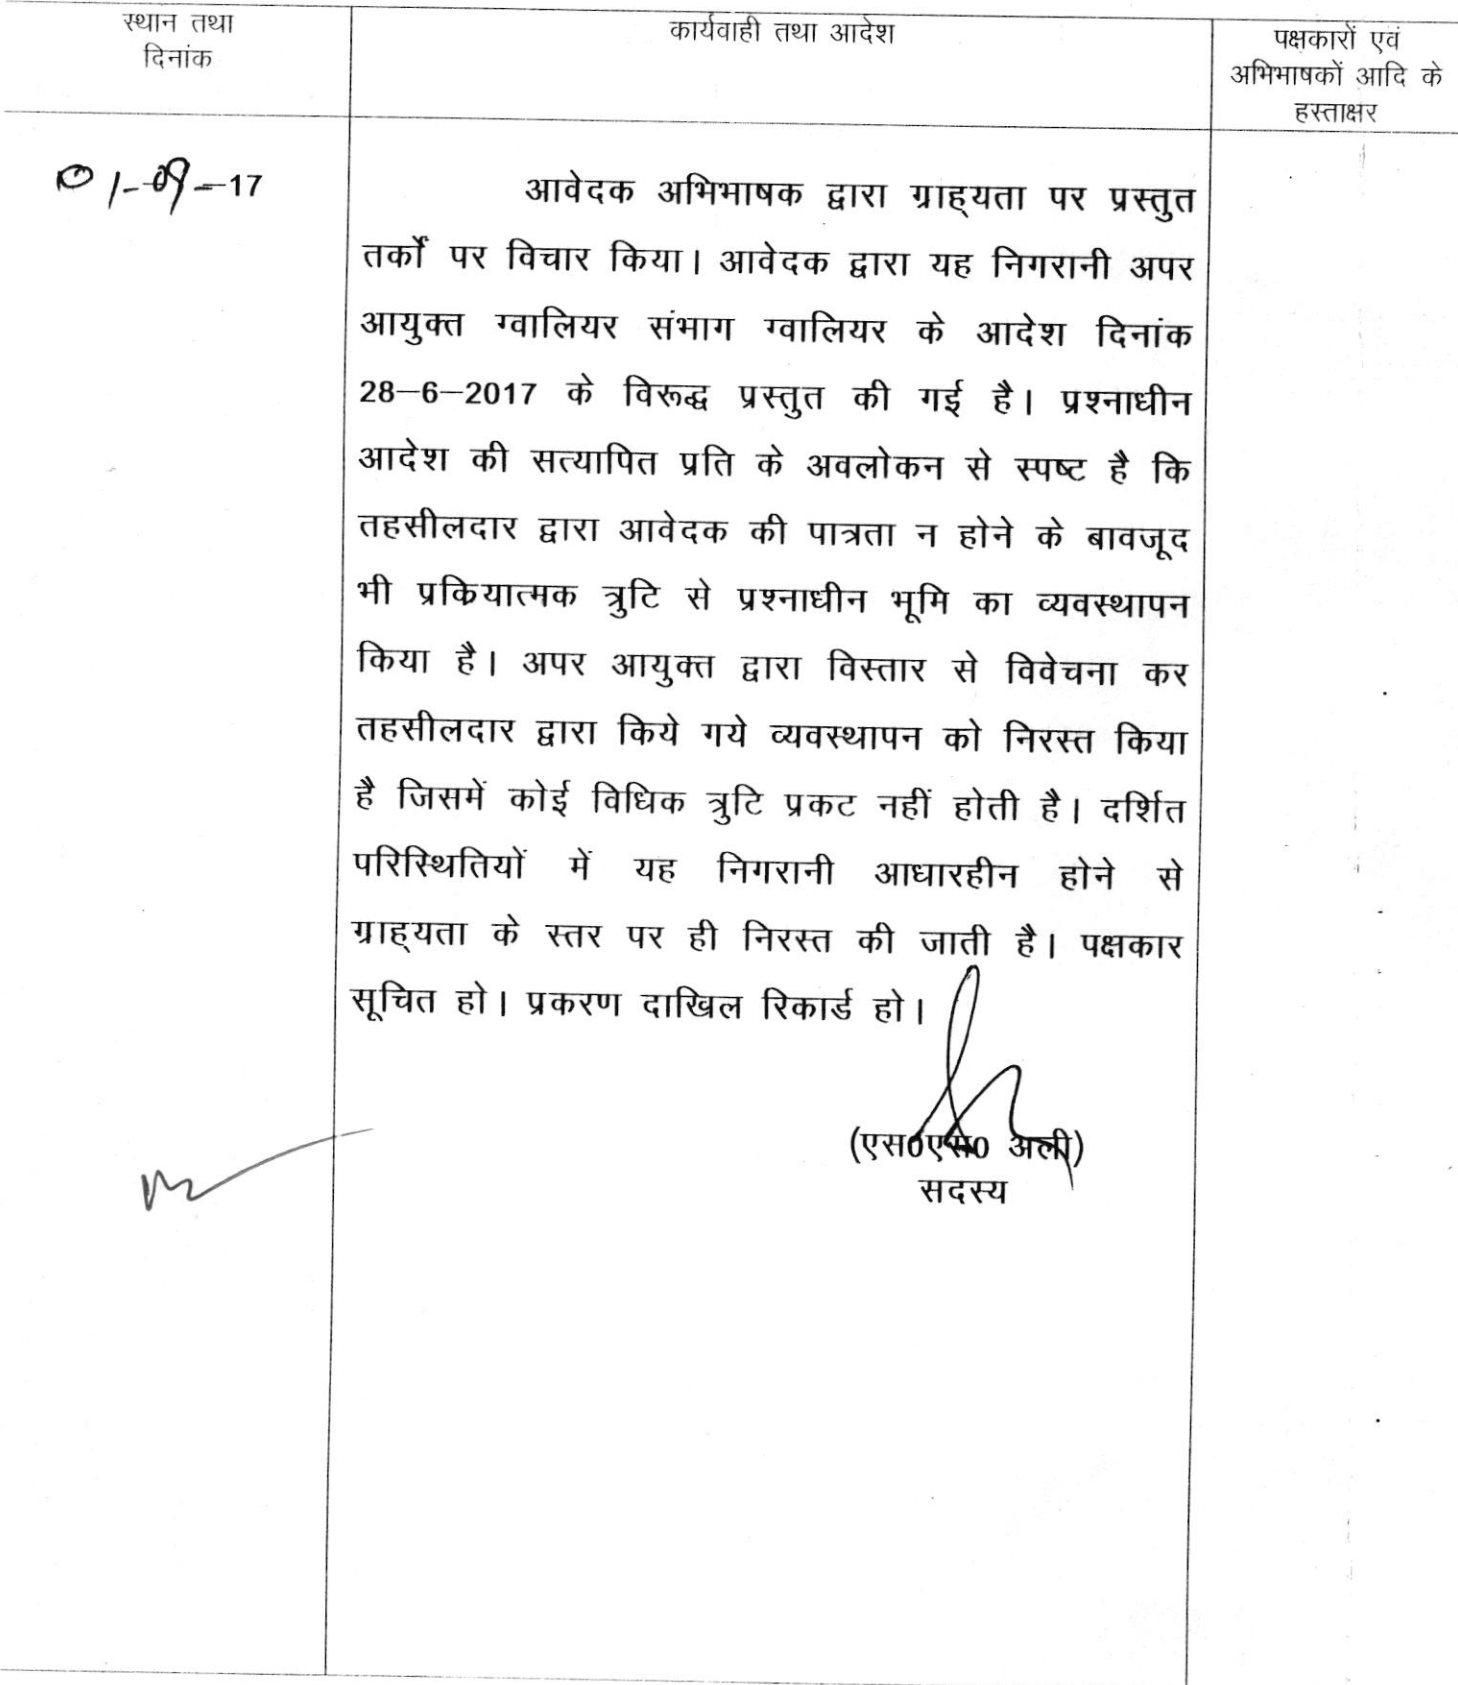 स्थान तथा
दिनांक
कार्यवाही तथा आदेश
पक्षकारों एवं
अभिभाषकों आदि के
हस्ताक्षर
01-09-17
आवेदक अभिभाषक द्वारा ग्राह्यता पर प्रस्तुत
तर्कों पर विचार किया। आवेदक द्वारा यह निगरानी अपर
आयुक्त ग्वालियर संभाग ग्वालियर के आदेश दिनांक
28–6–2017 के विरूद्ध प्रस्तुत की गई है। प्रश्नाधीन
आदेश की सत्यापित प्रति के अवलोकन से स्पष्ट है कि
तहसीलदार द्वारा आवेदक की पात्रता न होने के बावजूद
भी प्रकियात्मक त्रुटि से प्रश्नाधीन भूमि का व्यवस्थापन
किया है। अपर आयुक्त द्वारा विस्तार से विवेचना कर
तहसीलदार द्वारा किये गये व्यवस्थापन को निरस्त किया
है जिसमें कोई विधिक त्रुटि प्रकट नहीं होती है। दर्शित
परिस्थितियों में यह निगरानी आधारहीन होने से
ग्राह्यता के स्तर पर ही निरस्त की जाती है। पक्षकार
सूचित हो। प्रकरण दाखिल रिकार्ड हो।
(एस0एस0 अली)
सदस्य